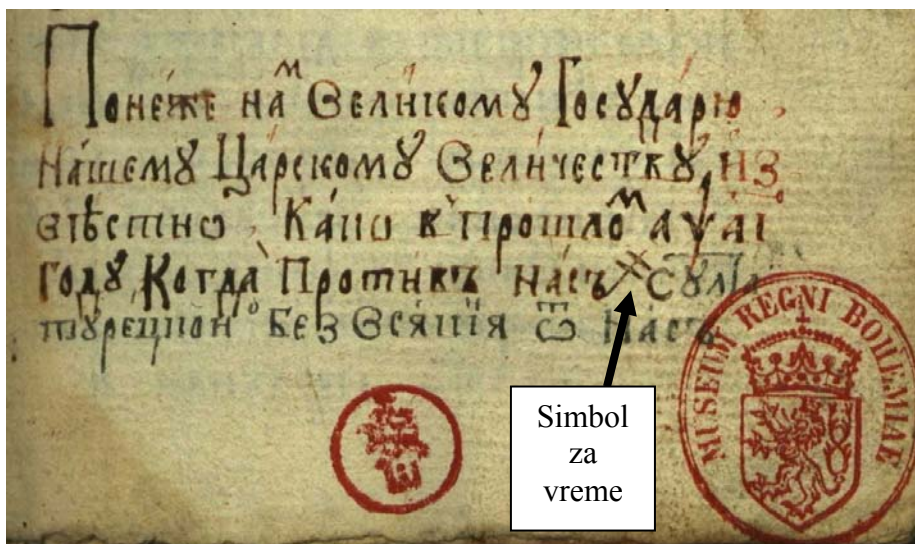 Понеже на́мъ Великому Государю
Нашему Царскому Величеству, из
вѣстно Како в прошломъ аѱаі
году, Когда Противъ насъ Сул
турецкой без Всякия ѿ насъ
Simbol
za
vreme
MUSEUM REGNI BOHEMIAE